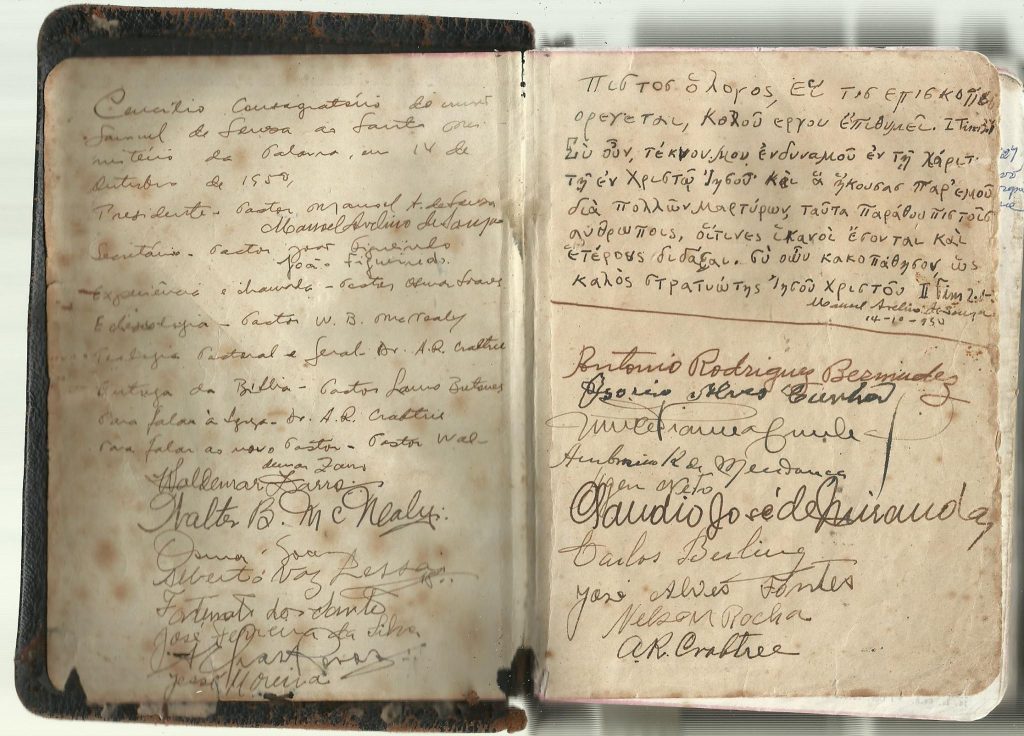 Concilio Consagratório do
Samuel de Souza ao Santo Mi-
nistério da Palavra, em 14 de
Outubro de 1950,
Presidente - Pastor Manoel A. de Souza
Manuel Avelino de Souza
Secretário - Pastor João Figueiredo
João Figueiredo.
Experiência e chamada - Pastor Osmar Soares
Eclesiologia - Pastor W. B. McNealy
Teologia Pastoral e Geral - Dr. A.R. Crabtree
Entrega da Bíblia - Pastor Lauro
Para falar à Igreja - Dr. A.R. Crabtree
Para falar ao novo Pastor - Pastor Wal-
demar Zarro
Waldemar Zarro
Walter B. McNealy.
Osmar Soares
Alberto Vaz Lessa
dos Santos
José Ferreira da Silva
Jessé Moreira
Πιστος ὁ λογος, εἴ τις επισκοπῆς
ορεγεται, καλοῦ εργου ἐπιθυμεῖ. I Tim 3:1
Σὺ οὖν, τέκνον μου ἐνδυναμοῦ ἐν τῇ χάριτ
τῇ ἐν Χριστῷ Ἰησοῦ· καὶ ἃ ἤκουσας παρ' εμοῦ
διὰ πολλῶν μαρτύρων, ταῦτα παράθου πιστοῖς
ανθρωποις, οἵτινες ἱκανοὶ ἔσονται καὶ
ἑτέρους διδάξαι. σὺ οὖν κακοπάθησον ὡς
καλὸς στρατιώτης Ἰησοῦ Χριστοῦ II Tim 2:1-
Manuel Avelino de Souza
14-10-950
Antonio Rodrigues Bermudez
Osorio Alves Cunha
Ambrosio R. de Mendonça
Claudio José de Miranda,
Carlos Berling
José Alves Fontes
Nelson Rocha
A.R. Crabtree